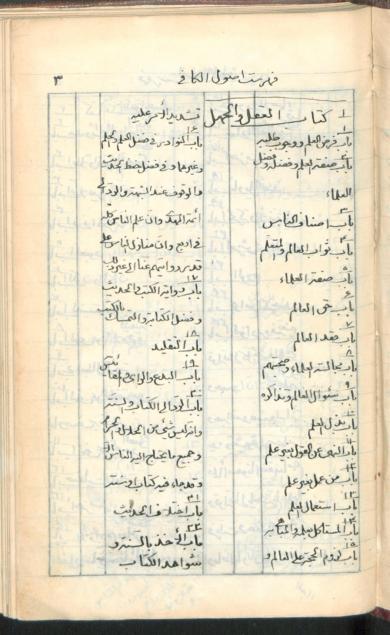 فهرست اصول الكافي
٣
١ كتاب العقل والجهل
١
باب فرض العلم ووجوب طلبه
٢
باب صفة العلم وفضله وفضل
العلماء
٣
باب اصناف الناس
٤
باب ثواب العالم والمتعلم
٥
باب صفة العلماء
٦
باب حق العالم
٧
باب فقد العالم
٨
باب مجالسة العلماء وصحبتهم
٩
باب سؤال العالم وتذاكره
١٠
باب بذل العلم
١١
باب النهى عن القول بغير علم
١٢
باب من عمل بغير علم
١٣
باب استعمال العلم
١٤
باب المستاكل بعلمه والمباهي به
١٥
باب لزوم الحجة على العالم و
تشديد الامر عليه
١٦
باب النوادر في فضل العلم والعلم
وغيرها وفي فضل حفظ الحديث
والوقوف عند الشبهة
ائمة الهدى وان على الناس
وان منازل الناس على
قدر روايتهم عنا
١٧
باب رواية الكتب والحديث
وفضل الكتابة والتمسك بالكتب
١٨
باب التقليد
١٩
باب البدع والراى والمقائيس
٢٠
باب الرد الى الكتاب والسنة
وانه ليس شيء من الحلال والحرام
وجميع ما يحتاج اليه الناس الا
وقد جاء فيه كتاب او سنة
٢١
باب اختلاف الحديث
٢٢
باب الاخذ بالسنة و
شواهد الكتاب